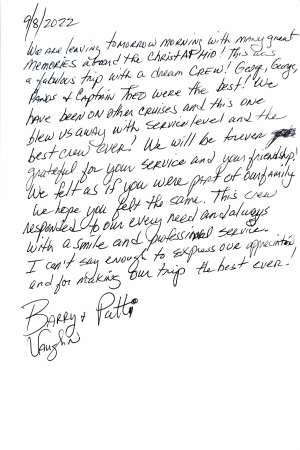 9/8/2022
We are leaving tomorrow morning with many great
memories aboard the ChristAPHiD! This was
a fabulous trip with a dream CREW! George, George,
Panos & Captain Theo were the best! We
have been on other cruises and this one
blew us away with service level and the
best crew ever! We will be forever
grateful for your service and your friendship!
We felt as if you were part of our family
We hope you felt the same. This crew
responded to our every need and always
with a smile and professional service
I can't say enough to express our appreciation
and for making our trip the best ever!
Barry + Patti
Vaughn